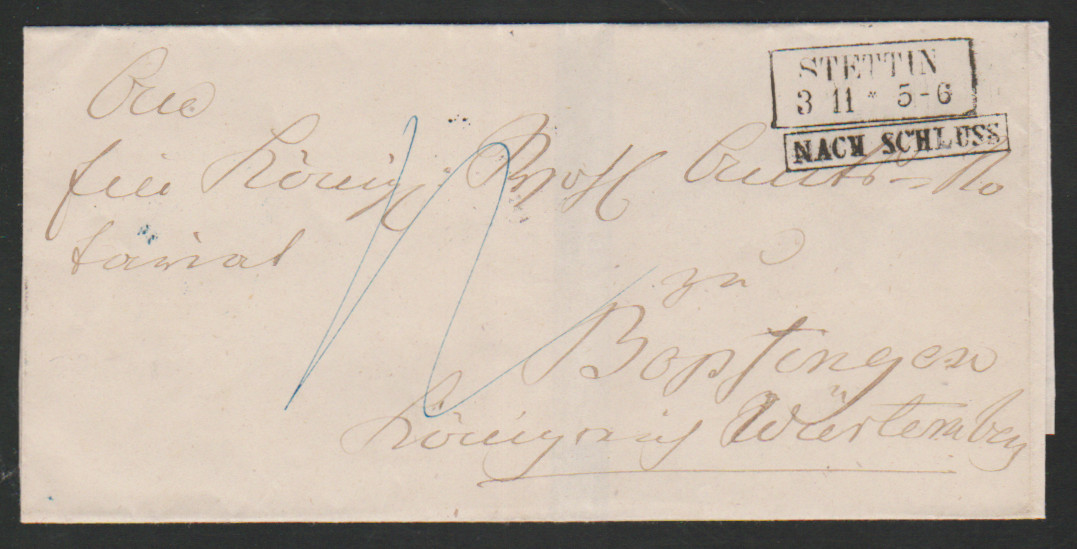 STETTIN
3 11 * 5-6
NACH SCHLUSS
An
Königl. Amts=No
tariat
zu
Bopfingen
Königreich Würtemberg